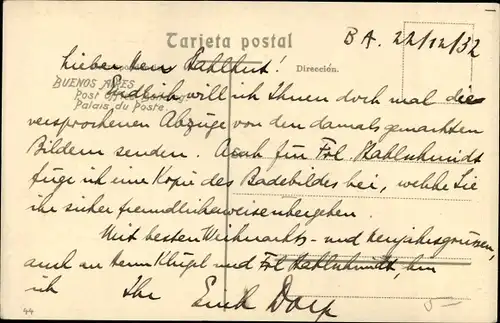 Tarjeta postal
BA. 22/12/32
Lieber Herr Kahlhut!
Dirección.
BUENOS AIRES
Endlich will ich Ihnen doch mal die
Post
Palais du Poste.
versprochenen Abzüge von den damals gemachten
Bildern senden. Auch für Frl. Kahlschmidt
füge ich eine Kopie des Badebildes bei, welche Sie
ihr sicher freundlicherweise übergeben.
Mit besten Weihnachts- und Neujahrsgrüssen,
auch an Herrn Klüpel und Frl. Kahlschmidt, bin
ich Ihr Erich Dorp
44